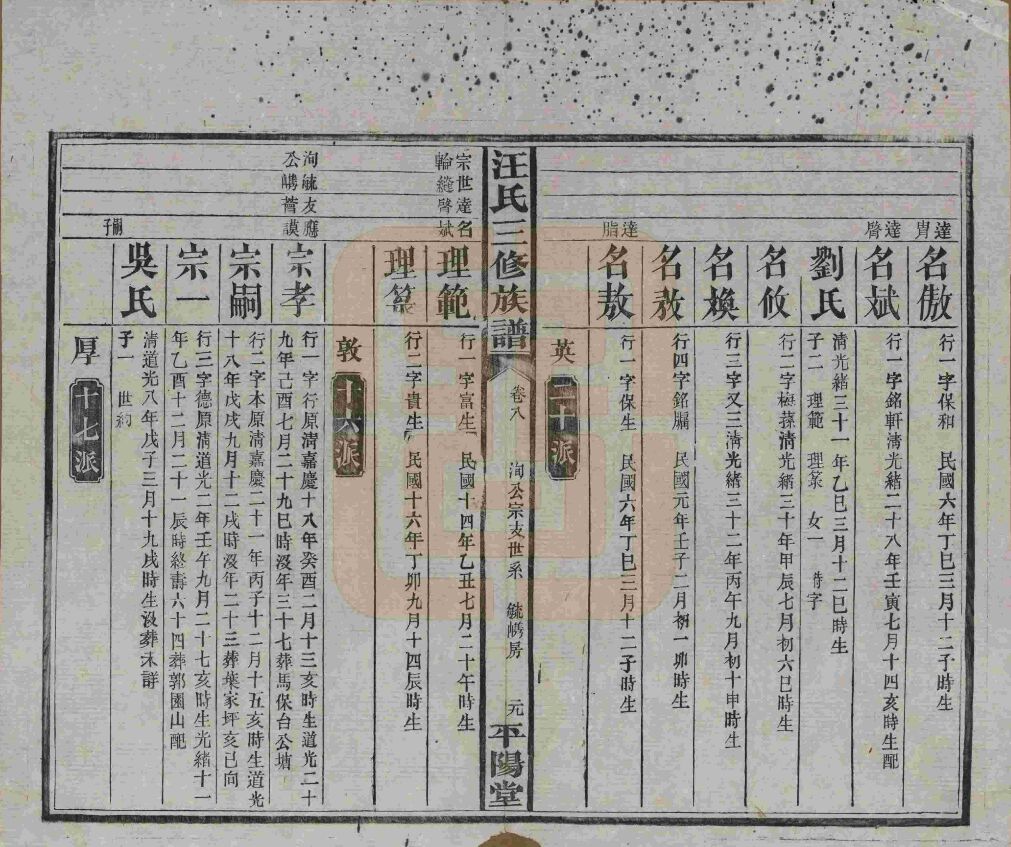 達胄
名傲
行一字保和 民國六年丁巳三月十二子時生
達膂
名斌
行一字銘軒清光緒二十八年壬寅七月十四亥時生配
劉氏
清光緒三十一年乙巳三月十二巳時生
子二 理範 理篆 女一 待字
名攸
行二字梅蓀清光緒三十年甲辰七月初六巳時生
名煥
行三字又三清光緒三十二年丙午九月初十申時生
名敄
行四字銘牖 民國元年壬子二月初一卯時生
達脂
名敖
行一字保生 民國六年丁巳三月十二子時生
英
二十派
汪氏三修族譜
卷八
洵公宗支世系
毓嶹房
元
平陽堂
宗世達名
輪縫膂斌
理範
行一字富生 民國十四年乙丑七月二十午時生
理篆
行二字貴生 民國十六年丁卯九月十四辰時生
敦
十六派
洵毓友應
公嶹薈謨
宗孝
行一字行原清嘉慶十八年癸酉二月十三亥時生道光二十
九年己酉七月二十九巳時沒年三十七葬馬保台公塘
宗嗣
行二字本原清嘉慶二十一年丙子十二月十五亥時生道光
十八年戊戌九月十二戌時沒年二十三葬葉家坪亥巳向
宗一
行三字德原清道光二年壬午九月二十七亥時生光緒十一
年乙酉十二月二十一辰時終壽六十四葬郭園山配
嗣子
吳氏
清道光八年戊子三月十九戌時生沒葬未詳
子一 世約
厚
十七派